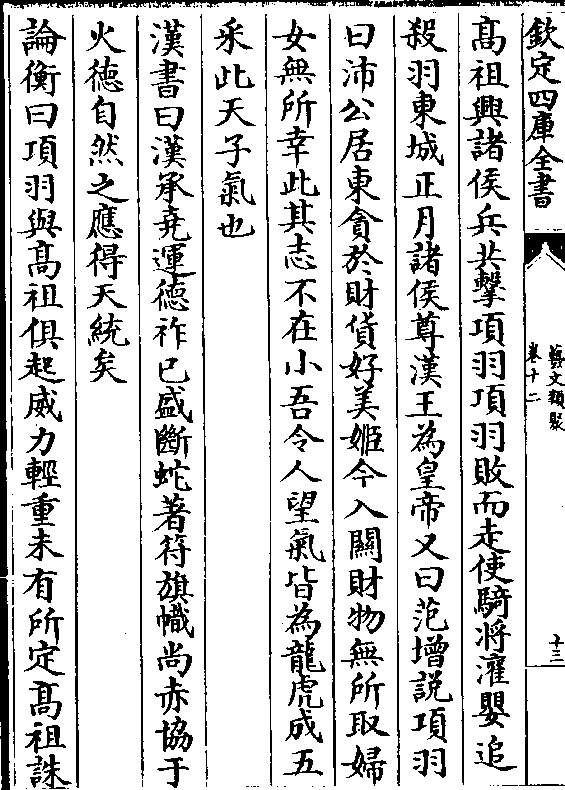 欽定四庫全書
藝文類聚
卷十二
十三
髙祖興諸侯兵共擊項羽項羽敗而走使騎將灌嬰追
殺羽東城正月諸侯尊漢王為皇帝又曰范增説項羽
曰沛公居東貪於財貨好美姬今入關財物無所取婦
女無所幸此其志不在小吾令人望氣皆為龍虎成五
采此天子氣也
漢書曰漢承堯運德祚已盛斷蛇著符旗幟尚赤協于
火德自然之應得天統矣
論衡曰項羽與髙祖俱起威力輕重未有所定髙祖誅